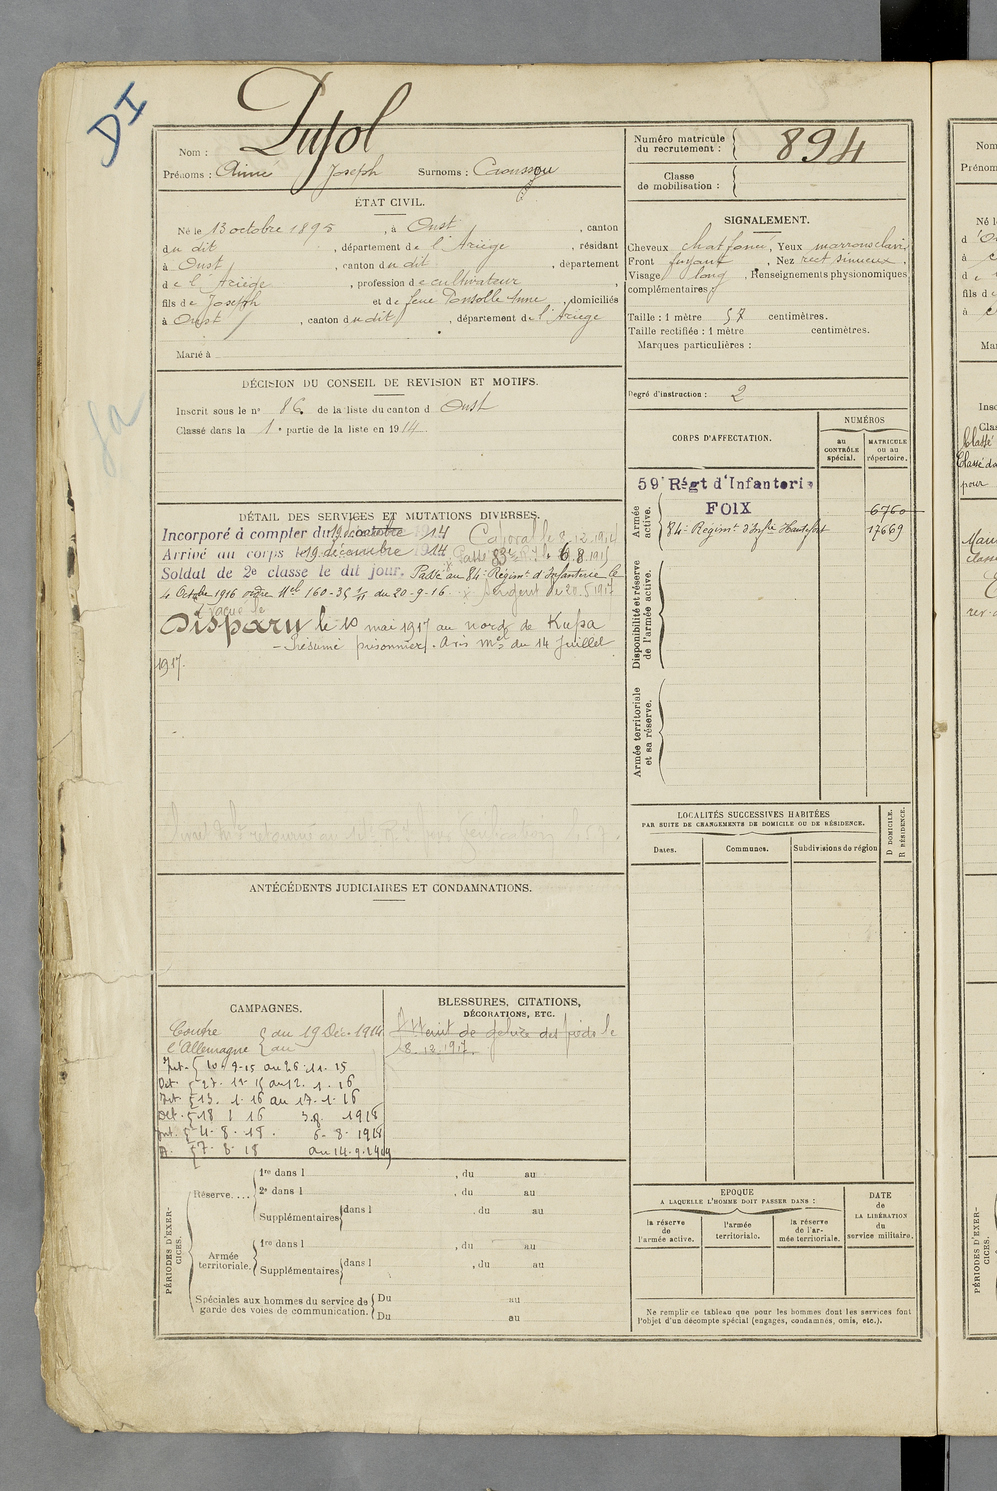 DI
Nom : Pujol
Prénoms : Aimé Joseph Surnoms : Caoussou
Numéro matricule du recrutement : 894
Classe de mobilisation :
ÉTAT CIVIL.
Né le 13 octobre 1895, à Oust, canton
du dit, département de l'Ariège, résidant
à Oust, canton du dit, département
de l'Ariège, profession de cultivateur,
fils de Joseph et de feue Ponsolle Anne, domiciliés
à Oust, canton du dit, département de l'Ariège
Marié à
SIGNALEMENT.
Cheveux chat foncé, Yeux marrons clairs,
Front fuyant, Nez rect sinueux,
Visage long, Renseignements physionomiques
complémentaires :
Taille : 1 mètre 57 centimètres.
Taille rectifiée : 1 mètre centimètres.
Marques particulières :
Degré d'instruction : 2
DÉCISION DU CONSEIL DE REVISION ET MOTIFS.
Inscrit sous le n° 86 de la liste du canton d Oust
Classé dans la 1e partie de la liste en 1914.
DÉTAIL DES SERVICES ET MUTATIONS DIVERSES.
Incorporé à compter du 19 14 Caporal le 8.12.1914
Arrivé au corps le 19 décembre 1914 Passé 83e R.I. le 6.8.1915
Soldat de 2e classe le dit jour. Passé au 84e Régimt d'Infanterie le
4 Octobre 1916 ordre Mel 160-35 du 20-9-16. Sergent le 20.5.1917
Disparu le 10 mai 1917 au nord de Kupa
- Présumé prisonnier. Avis Mel du 14 Juillet
1917.
CORPS D'AFFECTATION.
NUMÉROS
au CONTRÔLE spécial.
MATRICULE ou au répertoire.
Armée active.
59e Régt d'Infanterie
FOIX 6760
84e Régimt d'Infie 17669
Disponibilité et réserve de l'armée active.
Armée territoriale et sa réserve.
LOCALITÉS SUCCESSIVES HABITÉES
PAR SUITE DE CHANGEMENTS DE DOMICILE OU DE RÉSIDENCE.
Dates. Communes. Subdivisions de région D DOMICILE. R RÉSIDENCE.
ANTÉCÉDENTS JUDICIAIRES ET CONDAMNATIONS.
CAMPAGNES.
Contre l'Allemagne { du 19 Déc. 1914
au
Int. { 10-9-15 au 26.11.15
Oct. { 27.11.15 au 12.1.16
Int. { 13.1.16 au 17.1.16
Oct. { 18 1 16 3.8. 1918
Int. { 4-8-18. 6-8-1918
{ 7-8-18 au 14.9.1919
BLESSURES, CITATIONS,
DÉCORATIONS, ETC.
de gelure des pieds le
8.12.1917
PÉRIODES D'EXERCICES.
Réserve.... 1re dans l , du au
2e dans l , du au
Supplémentaires dans l , du au
Armée territoriale. 1re dans l , du au
Supplémentaires dans l , du au
Spéciales aux hommes du service de garde des voies de communication. Du au
Du au
EPOQUE
A LAQUELLE L'HOMME DOIT PASSER DANS :
la réserve de l'armée active.
l'armée territoriale.
la réserve de l'armée territoriale.
DATE de LA LIBÉRATION du service militaire.
Ne remplir ce tableau que pour les hommes dont les services font
l'objet d'un décompte spécial (engagés, condamnés, omis, etc.).